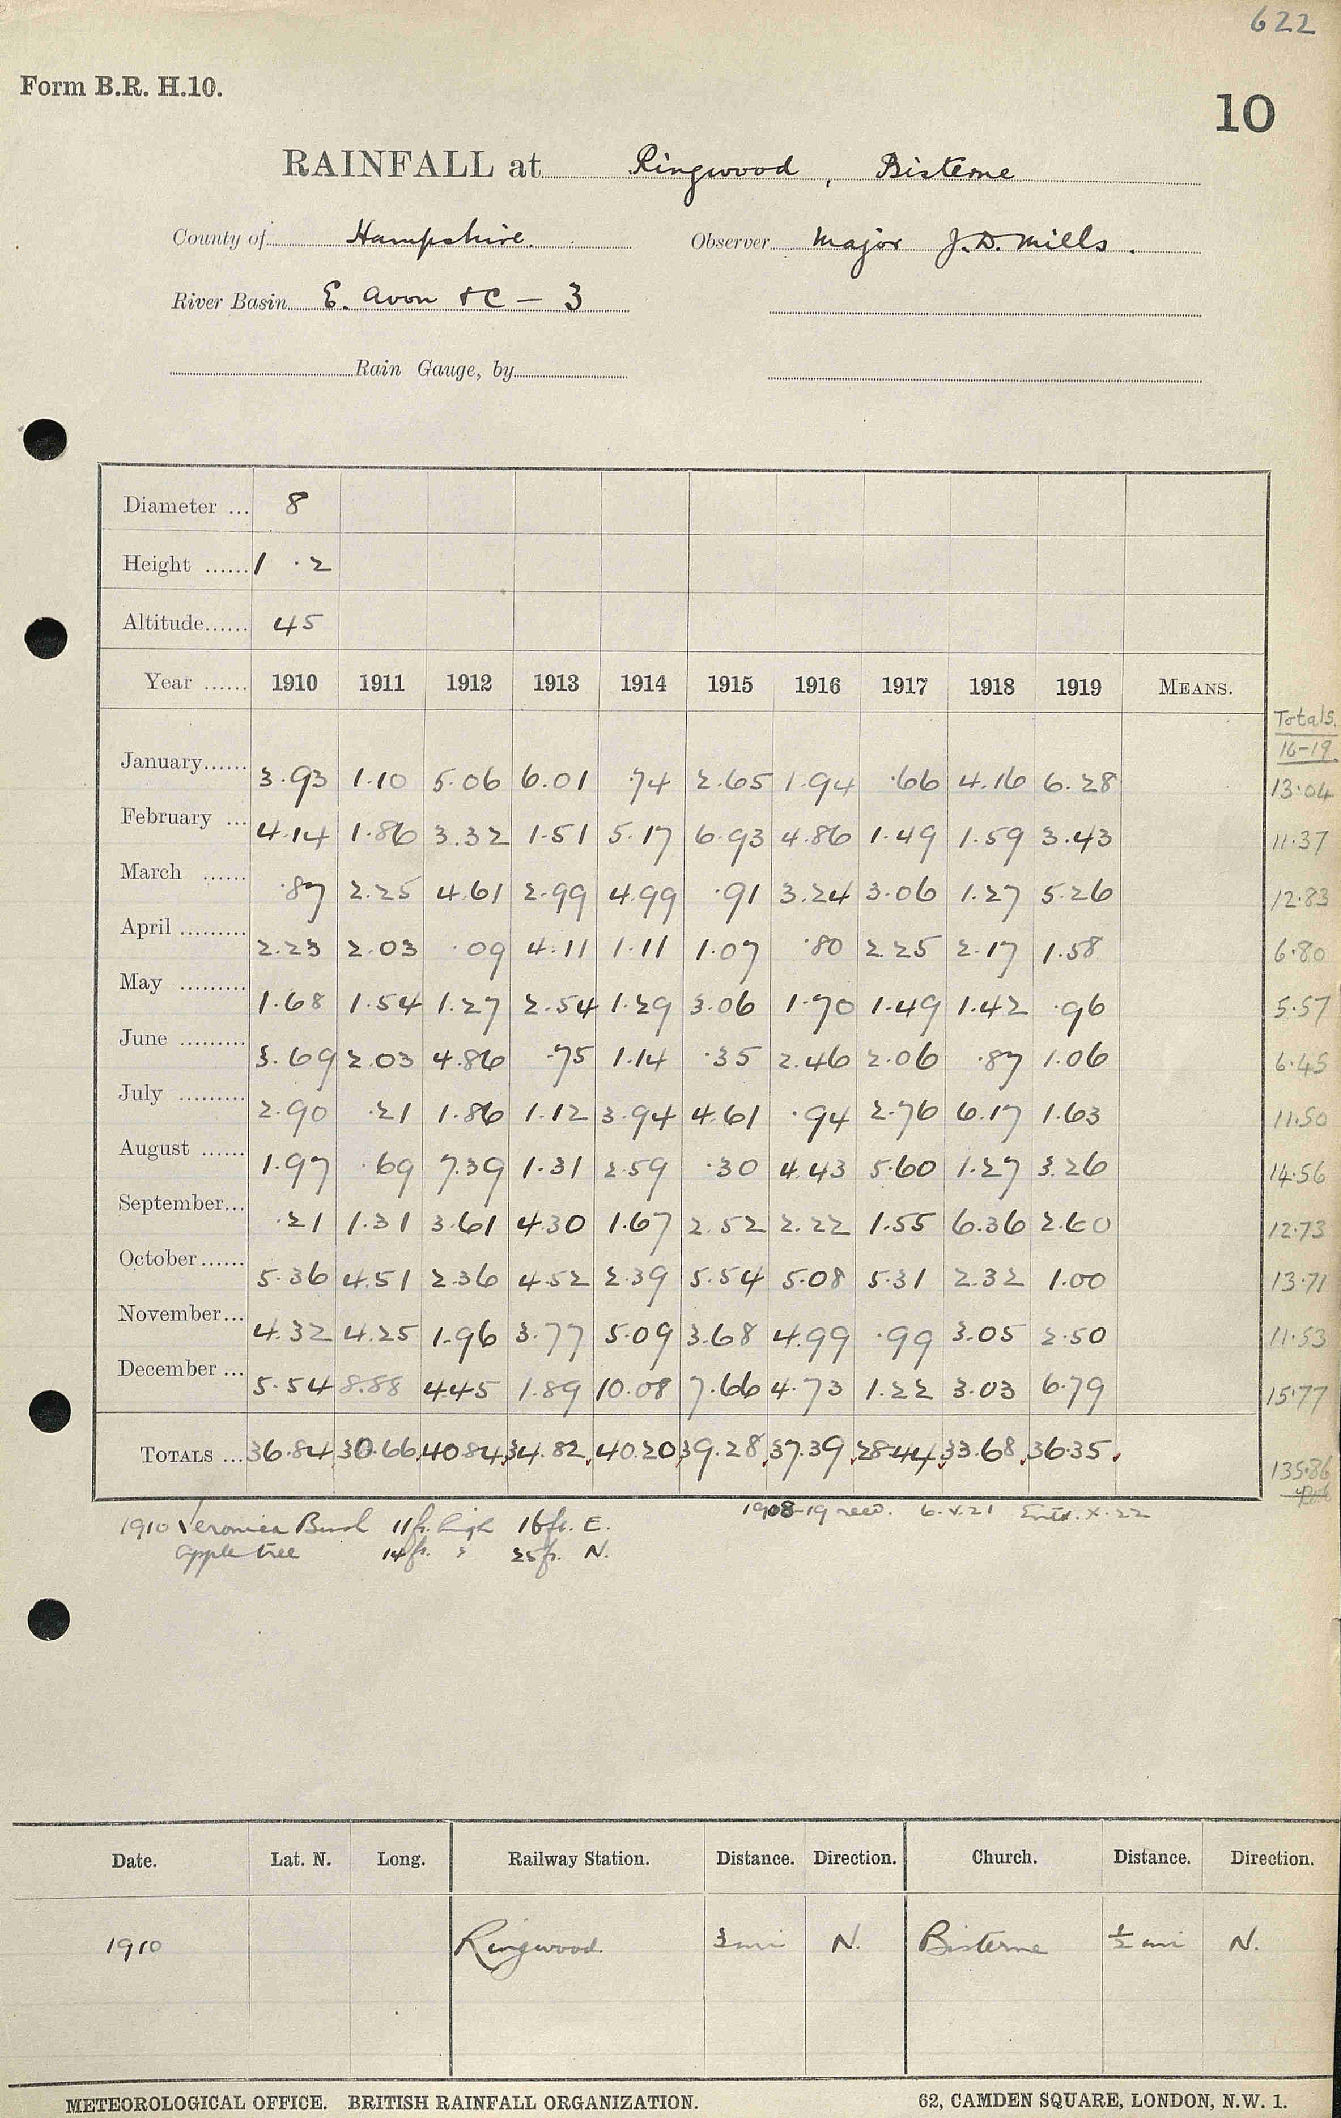 622
Form B.R. H.10.
10
RAINFALL at Ringwood, Bisterne
County of Hampshire. Observer Major J. D. Mills.
River Basin E. Avon &c — 3
Rain Gauge, by
Diameter ... 8
Height ...... 1 .2
Altitude...... 45
Year ...... 1910 1911 1912 1913 1914 1915 1916 1917 1918 1919 MEANS.
Totals.
16-19
January...... 3.93 1.10 5.06 6.01 .74 2.65 1.94 .66 4.16 6.28 13.04
February ... 4.14 1.86 3.32 1.51 5.17 6.93 4.86 1.49 1.59 3.43 11.37
March ...... .87 2.25 4.61 2.99 4.99 .91 3.24 3.06 1.27 5.26 12.83
April ......... 2.23 2.03 .09 4.11 1.11 1.07 .80 2.25 2.17 1.58 6.80
May ......... 1.68 1.54 1.27 2.54 1.29 3.06 1.70 1.49 1.42 .96 5.57
June ......... 3.69 2.03 4.86 .75 1.14 .35 2.46 2.06 .87 1.06 6.45
July ......... 2.90 .21 1.86 1.12 3.94 4.61 .94 2.76 6.17 1.63 11.50
August ...... 1.97 .69 7.39 1.31 2.59 .30 4.43 5.60 1.27 3.26 14.56
September... .21 1.31 3.61 4.30 1.67 2.52 2.22 1.55 6.36 2.60 12.73
October...... 5.36 4.51 2.36 4.52 2.39 5.54 5.08 5.31 2.32 1.00 13.71
November... 4.32 4.25 1.96 3.77 5.09 3.68 4.99 .99 3.05 2.50 11.53
December ... 5.54 8.88 4.45 1.89 10.08 7.66 4.73 1.22 3.03 6.79 15.77
TOTALS ... 36.84 30.66 40.84 34.82 40.20 39.28 37.39 28.44 33.68 36.35 135.86
1908-19 recd. 6.X.21 Entd. X.22
1910 Veronica Bush 11ft. high 16ft. E.
apple tree 14ft. " 25ft. N.
Date. Lat. N. Long. Railway Station. Distance. Direction. Church. Distance. Direction.
1910 Ringwood. 3 mi N. Bisterne ½ mi N.
METEOROLOGICAL OFFICE. BRITISH RAINFALL ORGANIZATION. 62, CAMDEN SQUARE, LONDON, N.W. 1.